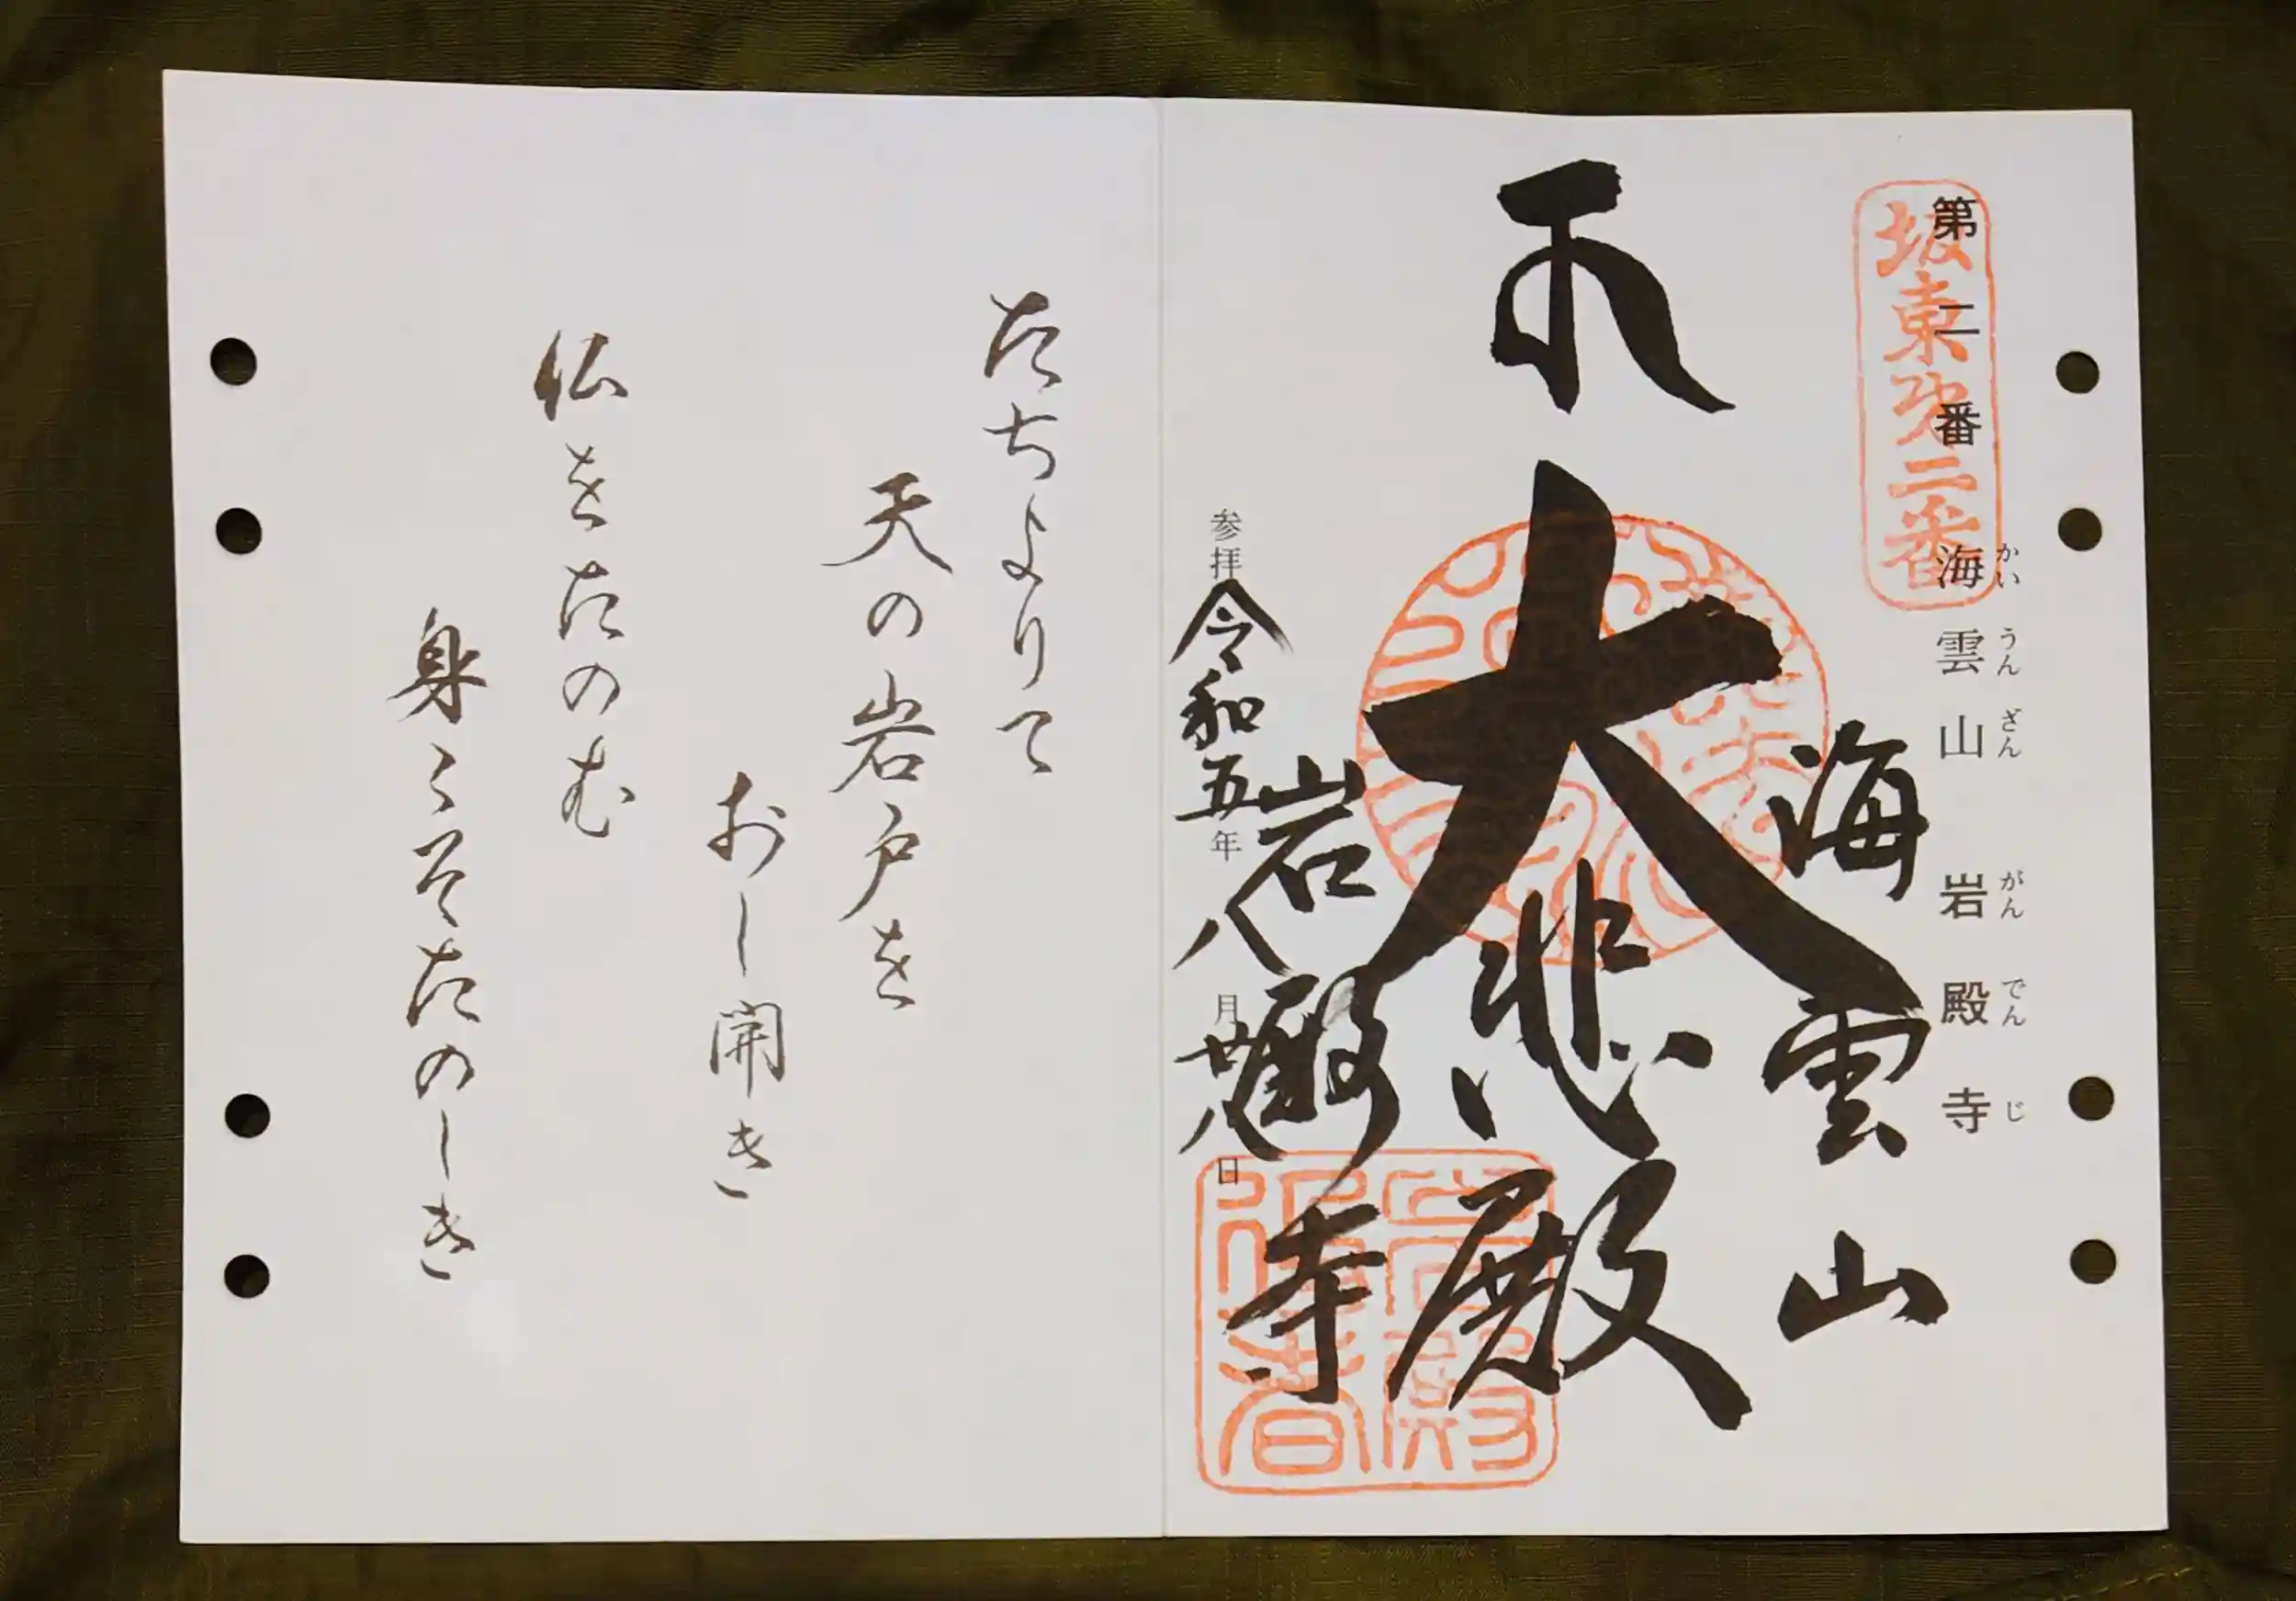 第二番 海雲山 岩殿寺
かいうんざん がんでんじ
坂東第二番
海雲山
大悲殿
岩殿寺
参拝 令和五年八月廿八日
たちよりて
天の岩戸を
おし開き
仏をたのむ
身こそたのしき